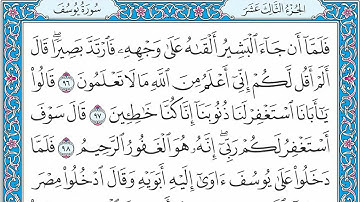 الجزء الثالث عشر
سورة يوسف
فَلَمَّا أَن جَاءَ الْبَشِيرُ أَلْقَىٰهُ عَلَىٰ وَجْهِهِۦ فَارْتَدَّ بَصِيرًا ۖ قَالَ
أَلَمْ أَقُل لَّكُمْ إِنِّي أَعْلَمُ مِنَ اللَّهِ مَا لَا تَعْلَمُونَ ٩٦ قَالُوا
يَٰٓأَبَانَا اسْتَغْفِرْ لَنَا ذُنُوبَنَا إِنَّا كُنَّا خَٰطِـِٔينَ ٩٧ قَالَ سَوْفَ
أَسْتَغْفِرُ لَكُمْ رَبِّي ۖ إِنَّهُۥ هُوَ الْغَفُورُ الرَّحِيمُ ٩٨ فَلَمَّا
دَخَلُوا عَلَىٰ يُوسُفَ ءَاوَىٰٓ إِلَيْهِ أَبَوَيْهِ وَقَالَ ادْخُلُوا مِصْرَ